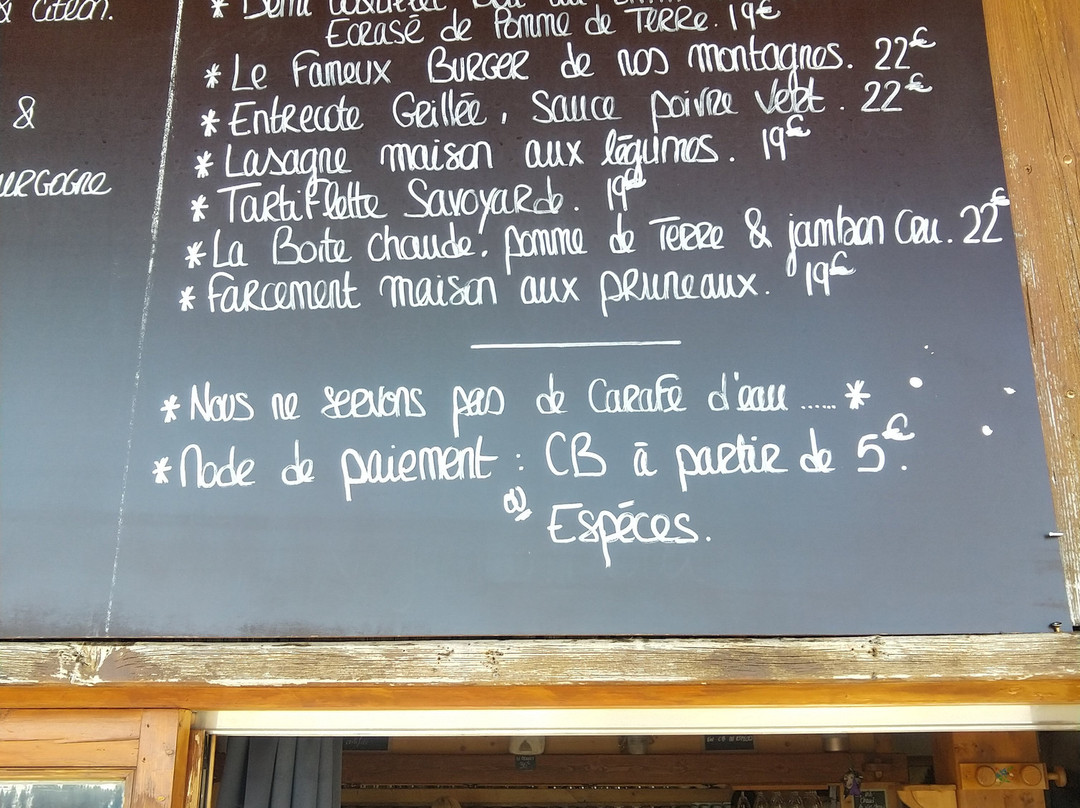 & Citron.
&
* Demi
Ecrasé de Pomme de Terre. 19€
* Le Fameux BURGER de nos montagnes. 22€
* Entrecote Grillée, Sauce poivre Vert. 22€
* Lasagne maison aux légumes. 19€
* Tartiflette Savoyarde. 19€
* La Boite chaude, pomme de Terre & jambon Cru. 22€
* Farcement maison aux pruneaux. 19€
* Nous ne servons pas de Carafe d'eau ...... *
* Mode de paiement : CB à partir de 5€.
ou
Espéces.